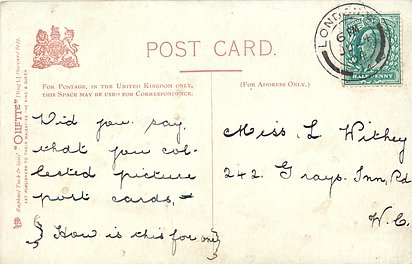 POST CARD.
FOR POSTAGE, IN THE UNITED KINGDOM ONLY,
THIS SPACE MAY BE USED FOR CORRESPONDENCE.
(FOR ADDRESS ONLY.)
HALFPENNY
LONDON
"OILETTE"
Did you say
that you col-
lected picture
post cards.
How is this for one
Miss. L Withey
242. Grays. Inn, Rd
W.C.